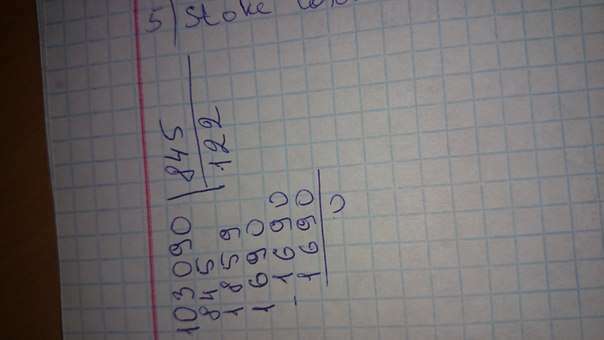 5) Stoke
103 090 845
845 122
1859
1690
1690
- 1690
0